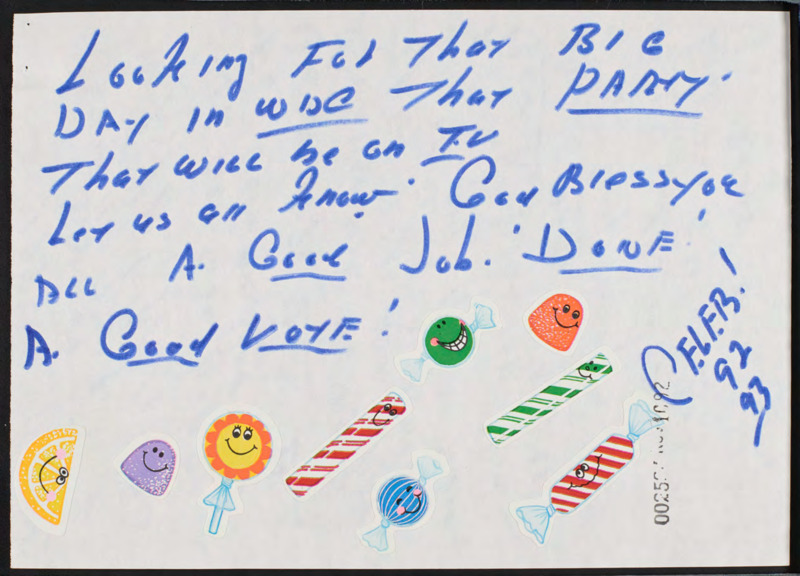 Looking For That BIG
DAY In WDC That PARTY.
That will be on TV
Let us all know. God Bless you
All A. Good Job. DONE!
A. Good VOTE!
CELEB!
92
93